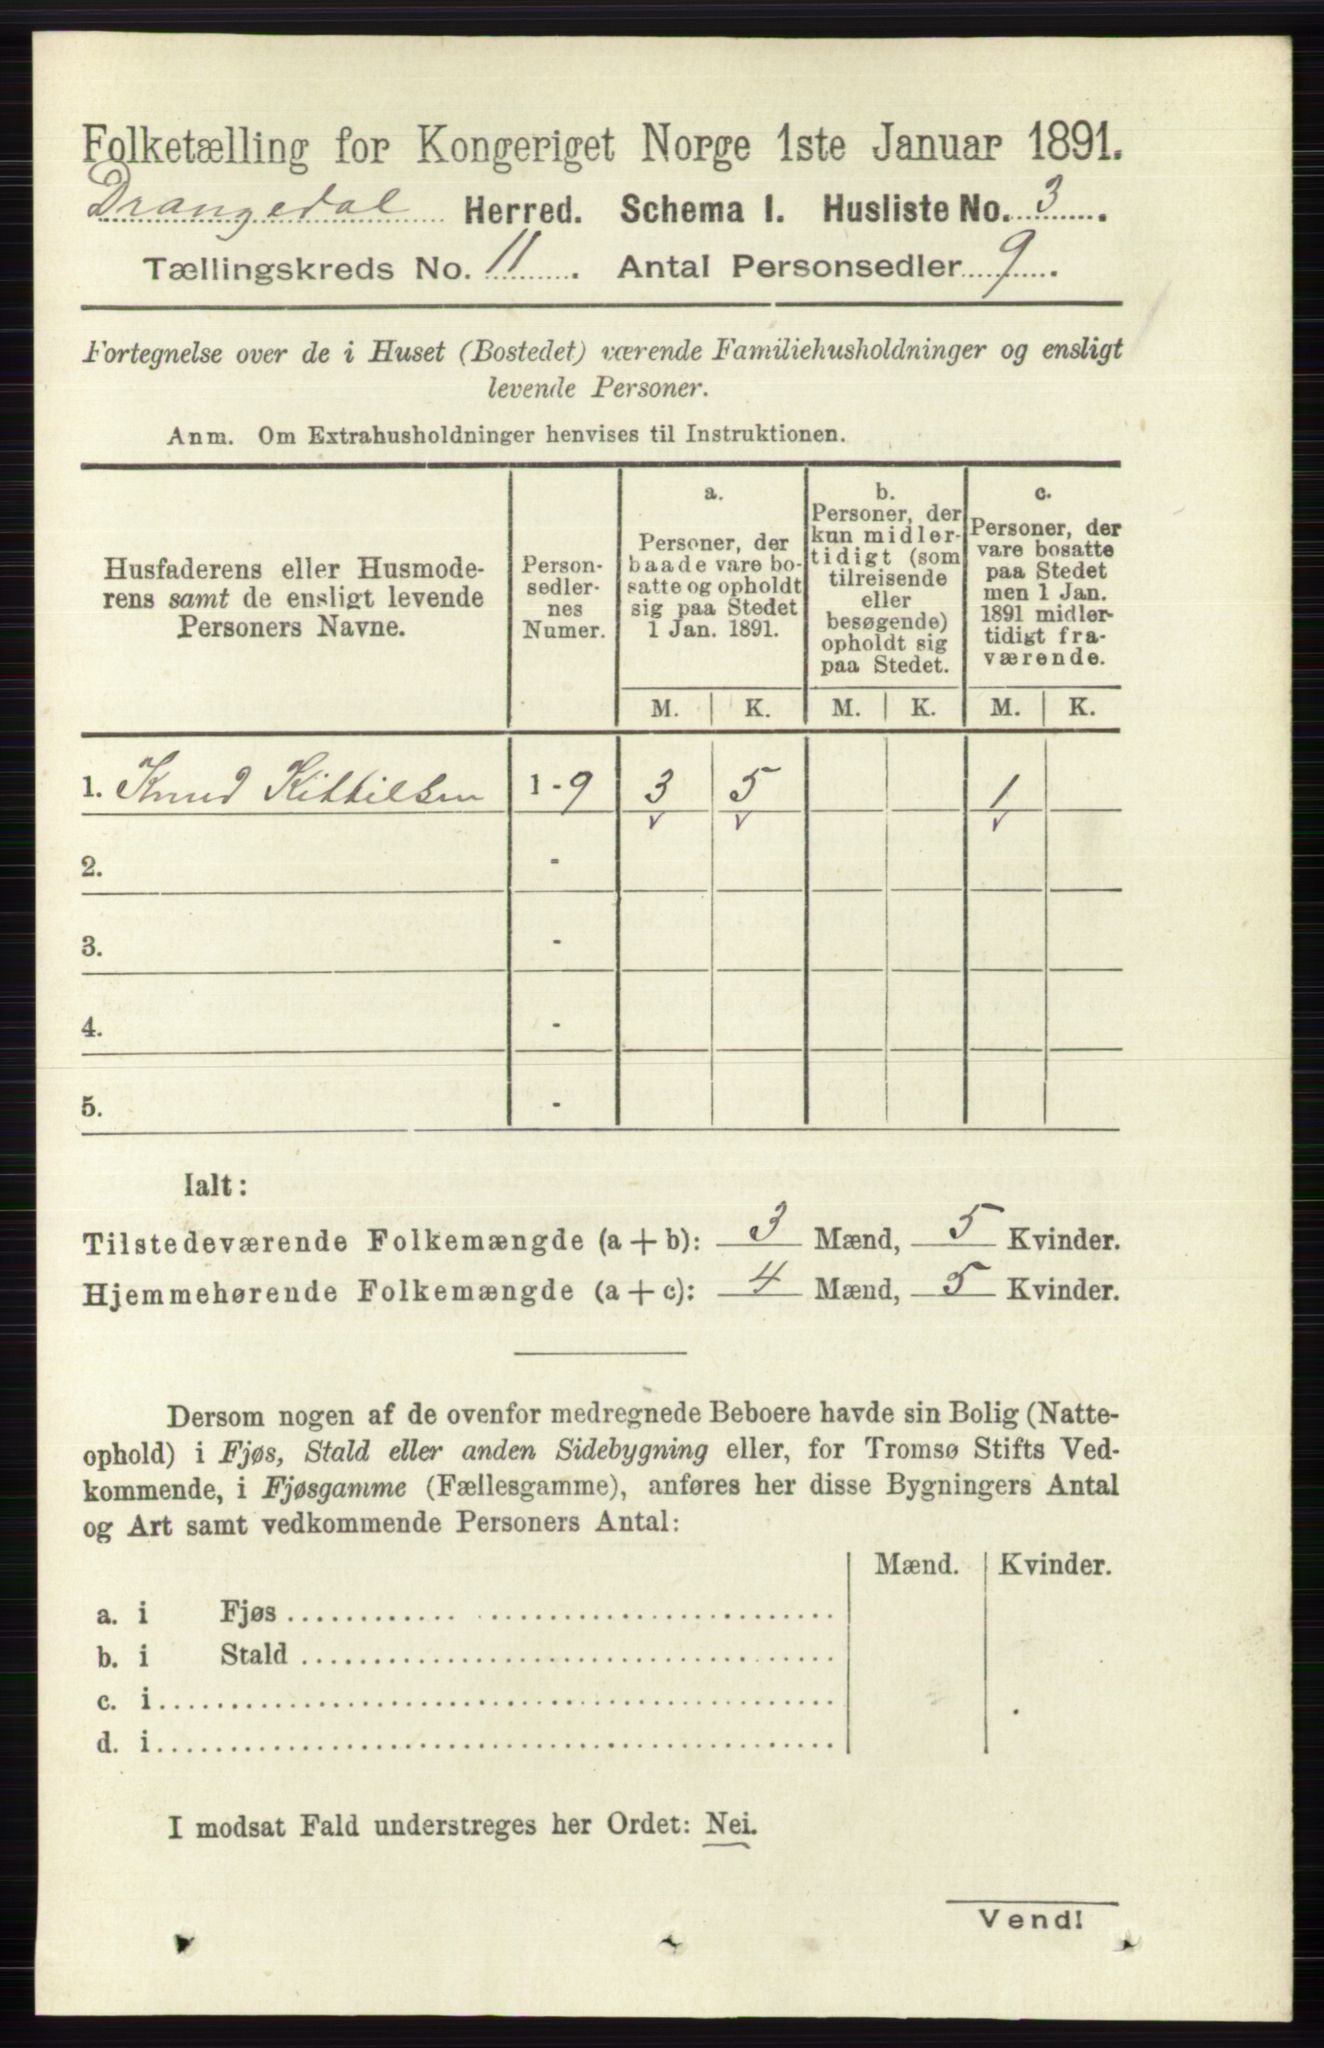 Folketælling for Kongeriget Norge 1ste Januar 1891.
Drangedal Herred. Schema I. Husliste No. 3.
Tællingskreds No. 11. Antal Personsedler 9.
Fortegnelse over de i Huset (Bostedet) værende Familiehusholdninger og ensligt
levende Personer.
Anm. Om Extrahusholdninger henvises til Instruktionen.
Husfaderens eller Husmode-
rens samt de ensligt levende
Personers Navne.
Person-
sedler-
nes
Numer.
a.
Personer, der
baade vare bo-
satte og opholdt
sig paa Stedet
1 Jan. 1891.
b.
Personer, der
kun midler-
tidigt (som
tilreisende
eller
besøgende)
opholdt sig
paa Stedet.
c.
Personer, der
vare bosatte
paa Stedet
men 1 Jan.
1891 midler-
tidigt fra-
værende.
M. K. M. K. M. K.
1. Knud Kittilsen 1-9 3 5 1
2. -
3. -
4. -
5. -
Ialt:
Tilstedeværende Folkemængde (a+b): 3 Mænd, 5 Kvinder.
Hjemmehørende Folkemængde (a+c): 4 Mænd, 5 Kvinder.
Dersom nogen af de ovenfor medregnede Beboere havde sin Bolig (Natte-
ophold) i Fjøs, Stald eller anden Sidebygning eller, for Tromsø Stifts Ved-
kommende, i Fjøsgamme (Fællesgamme), anføres her disse Bygningers Antal
og Art samt vedkommende Personers Antal:
Mænd. Kvinder.
a. i Fjøs
b. i Stald
c. i
d. i
I modsat Fald understreges her Ordet: Nei.
Vend!